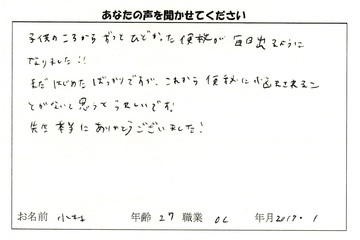 あなたの声を聞かせてください
子供のころからずっとひどかった便秘が毎日出るように
なりました!!
まだはじめたばっかりですが、これから便秘に悩まされるこ
とがないと思うとうれしいです。
先生 本当にありがとうございました!
お名前 小林 年齢 27 職業 OL 年月 2017・1